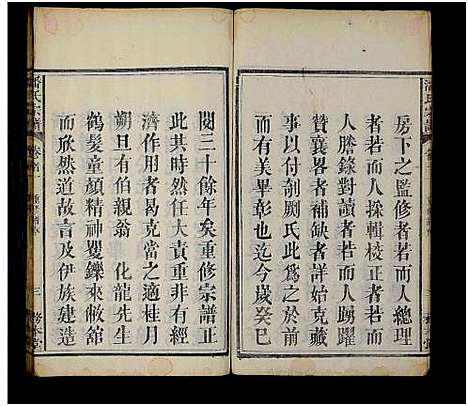 房下之監修者若而人總理
者若而人採輯校正者若而
人謄錄對讀者若而人所有
贊襄畧者補缺者詳始克藏
事以付剞劂氏此爲之
有美畢彰也迄今歲癸巳
閱三十餘年矣重修宗譜正
此其時然任大責重非有經
濟作用者曷克當之適桂月
朔旦有伯親翁 化龍先生
鶴髮童顔精神矍鑠來敝舘
而欣然道故言及伊族建造
潘氏宗譜
卷首
三